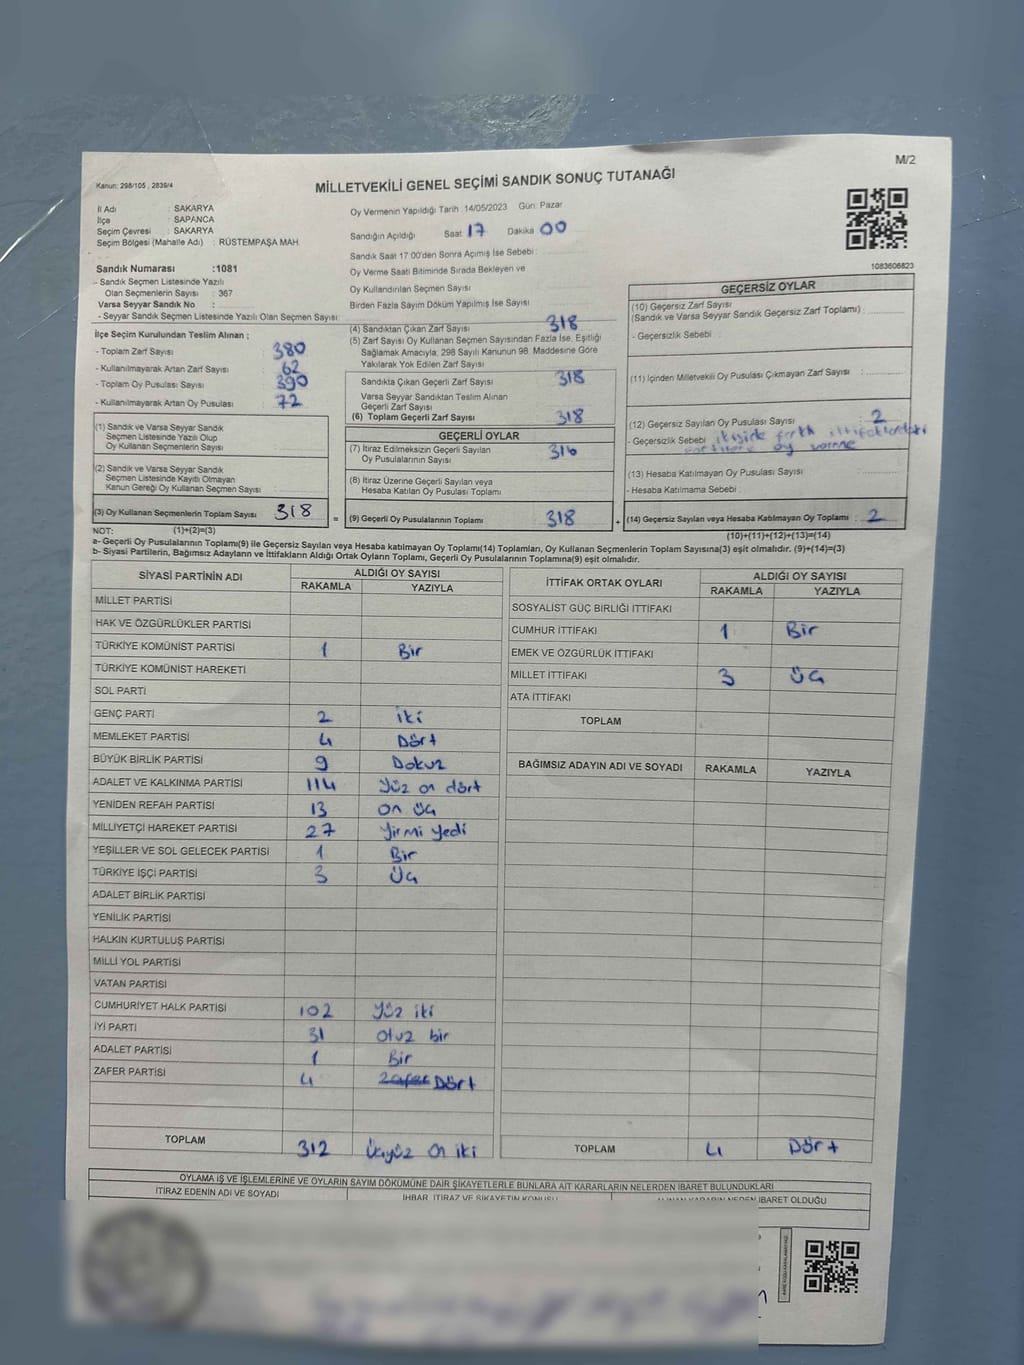 M/2
Kanun: 298/105 , 2839/4
MİLLETVEKİLİ GENEL SEÇİMİ SANDIK SONUÇ TUTANAĞI
İl Adı : SAKARYA
İlçe : SAPANCA
Seçim Çevresi : SAKARYA
Seçim Bölgesi (Mahalle Adı) : RÜSTEMPAŞA MAH.
Oy Vermenin Yapıldığı Tarih :14/05/2023 Gün: Pazar
Sandığın Açıldığı Saat 17 Dakika 00
Sandık Saat 17:00'den Sonra Açımış İse Sebebi :
Oy Verme Saati Bitiminde Sırada Bekleyen ve
Oy Kullandırılan Seçmen Sayısı
Birden Fazla Sayım Döküm Yapılmış İse Sayısı
1083606823
Sandık Numarası :1081
- Sandık Seçmen Listesinde Yazılı
Olan Seçmenlerin Sayısı : 367
Varsa Seyyar Sandık No :
- Seyyar Sandık Seçmen Listesinde Yazılı Olan Seçmen Sayısı:
İlçe Seçim Kurulundan Teslim Alınan ;
- Toplam Zarf Sayısı 380
- Kullanılmayarak Artan Zarf Sayısı 62
- Toplam Oy Pusulası Sayısı 390
- Kullanılmayarak Artan Oy Pusulası 72
(1) Sandık ve Varsa Seyyar Sandık
Seçmen Listesinde Yazılı Olup
Oy Kullanan Seçmenlerin Sayısı
(2) Sandık ve Varsa Seyyar Sandık
Seçmen Listesinde Kayıtlı Olmayan
Kanun Gereği Oy Kullanan Seçmen Sayısı
(3) Oy Kullanan Seçmenlerin Toplam Sayısı 318
(4) Sandıktan Çıkan Zarf Sayısı 318
(5) Zarf Sayısı Oy Kullanan Seçmen Sayısından Fazla İse, Eşitliği
Sağlamak Amacıyla, 298 Sayılı Kanunun 98. Maddesine Göre
Yakılarak Yok Edilen Zarf Sayısı
Sandıkta Çıkan Geçerli Zarf Sayısı 318
Varsa Seyyar Sandıktan Teslim Alınan
Geçerli Zarf Sayısı
(6) Toplam Geçerli Zarf Sayısı 318
GEÇERLİ OYLAR
(7) İtiraz Edilmeksizin Geçerli Sayılan
Oy Pusulalarının Sayısı 316
(8) İtiraz Üzerine Geçerli Sayılan veya
Hesaba Katılan Oy Pusulası Toplamı
= (9) Geçerli Oy Pusulalarının Toplamı 318
GEÇERSİZ OYLAR
(10) Geçersiz Zarf Sayısı
(Sandık ve Varsa Seyyar Sandık Geçersiz Zarf Toplamı) :
- Geçersizlik Sebebi :
(11) İçinden Milletvekili Oy Pusulası Çıkmayan Zarf Sayısı :
(12) Geçersiz Sayılan Oy Pusulası Sayısı : 2
- Geçersizlik Sebebi ikiside farklı ittifaklardaki
partilere oy verme
(13) Hesaba Katılmayan Oy Pusulası Sayısı
- Hesaba Katılmama Sebebi :
+ (14) Geçersiz Sayılan veya Hesaba Katılmayan Oy Toplamı : 2
NOT: (1)+(2)=(3)
(10)+(11)+(12)+(13)=(14)
a- Geçerli Oy Pusulalarının Toplamı(9) ile Geçersiz Sayılan veya Hesaba katılmayan Oy Toplamı(14) Toplamları, Oy Kullanan Seçmenlerin Toplam Sayısına(3) eşit olmalıdır. (9)+(14)=(3)
b- Siyasi Partilerin, Bağımsız Adayların ve İttifakların Aldığı Ortak Oyların Toplamı, Geçerli Oy Pusulalarının Toplamına(9) eşit olmalıdır.
SİYASİ PARTİNİN ADI ALDIĞI OY SAYISI
RAKAMLA YAZIYLA
MİLLET PARTİSİ
HAK VE ÖZGÜRLÜKLER PARTİSİ
TÜRKİYE KOMÜNİST PARTİSİ 1 Bir
TÜRKİYE KOMÜNİST HAREKETİ
SOL PARTİ
GENÇ PARTİ 2 iki
MEMLEKET PARTİSİ 4 Dört
BÜYÜK BİRLİK PARTİSİ 9 Dokuz
ADALET VE KALKINMA PARTİSİ 114 Yüz on dört
YENİDEN REFAH PARTİSİ 13 on üç
MİLLİYETÇİ HAREKET PARTİSİ 27 Yirmi yedi
YEŞİLLER VE SOL GELECEK PARTİSİ 1 Bir
TÜRKİYE İŞÇİ PARTİSİ 3 Üç
ADALET BİRLİK PARTİSİ
YENİLİK PARTİSİ
HALKIN KURTULUŞ PARTİSİ
MİLLİ YOL PARTİSİ
VATAN PARTİSİ
CUMHURİYET HALK PARTİSİ 102 Yüz iki
İYİ PARTİ 31 Otuz bir
ADALET PARTİSİ 1 Bir
ZAFER PARTİSİ 4 Zafer Dört
TOPLAM 312 Üçyüz on iki
İTTİFAK ORTAK OYLARI ALDIĞI OY SAYISI
RAKAMLA YAZIYLA
SOSYALİST GÜÇ BİRLİĞİ İTTİFAKI
CUMHUR İTTİFAKI 1 Bir
EMEK VE ÖZGÜRLÜK İTTİFAKI
MİLLET İTTİFAKI 3 Üç
ATA İTTİFAKI
TOPLAM
BAĞIMSIZ ADAYIN ADI VE SOYADI RAKAMLA YAZIYLA
TOPLAM 4 Dört
OYLAMA İŞ VE İŞLEMLERİNE VE OYLARIN SAYIM DÖKÜMÜNE DAİR ŞİKAYETLERLE BUNLARA AİT KARARLARIN NELERDEN İBARET BULUNDUKLARI
İTİRAZ EDENİN ADI VE SOYADI İHBAR, İTİRAZ VE ŞİKAYETİN KONUSU ALINAN KARARIN NEDEN İBARET OLDUĞU